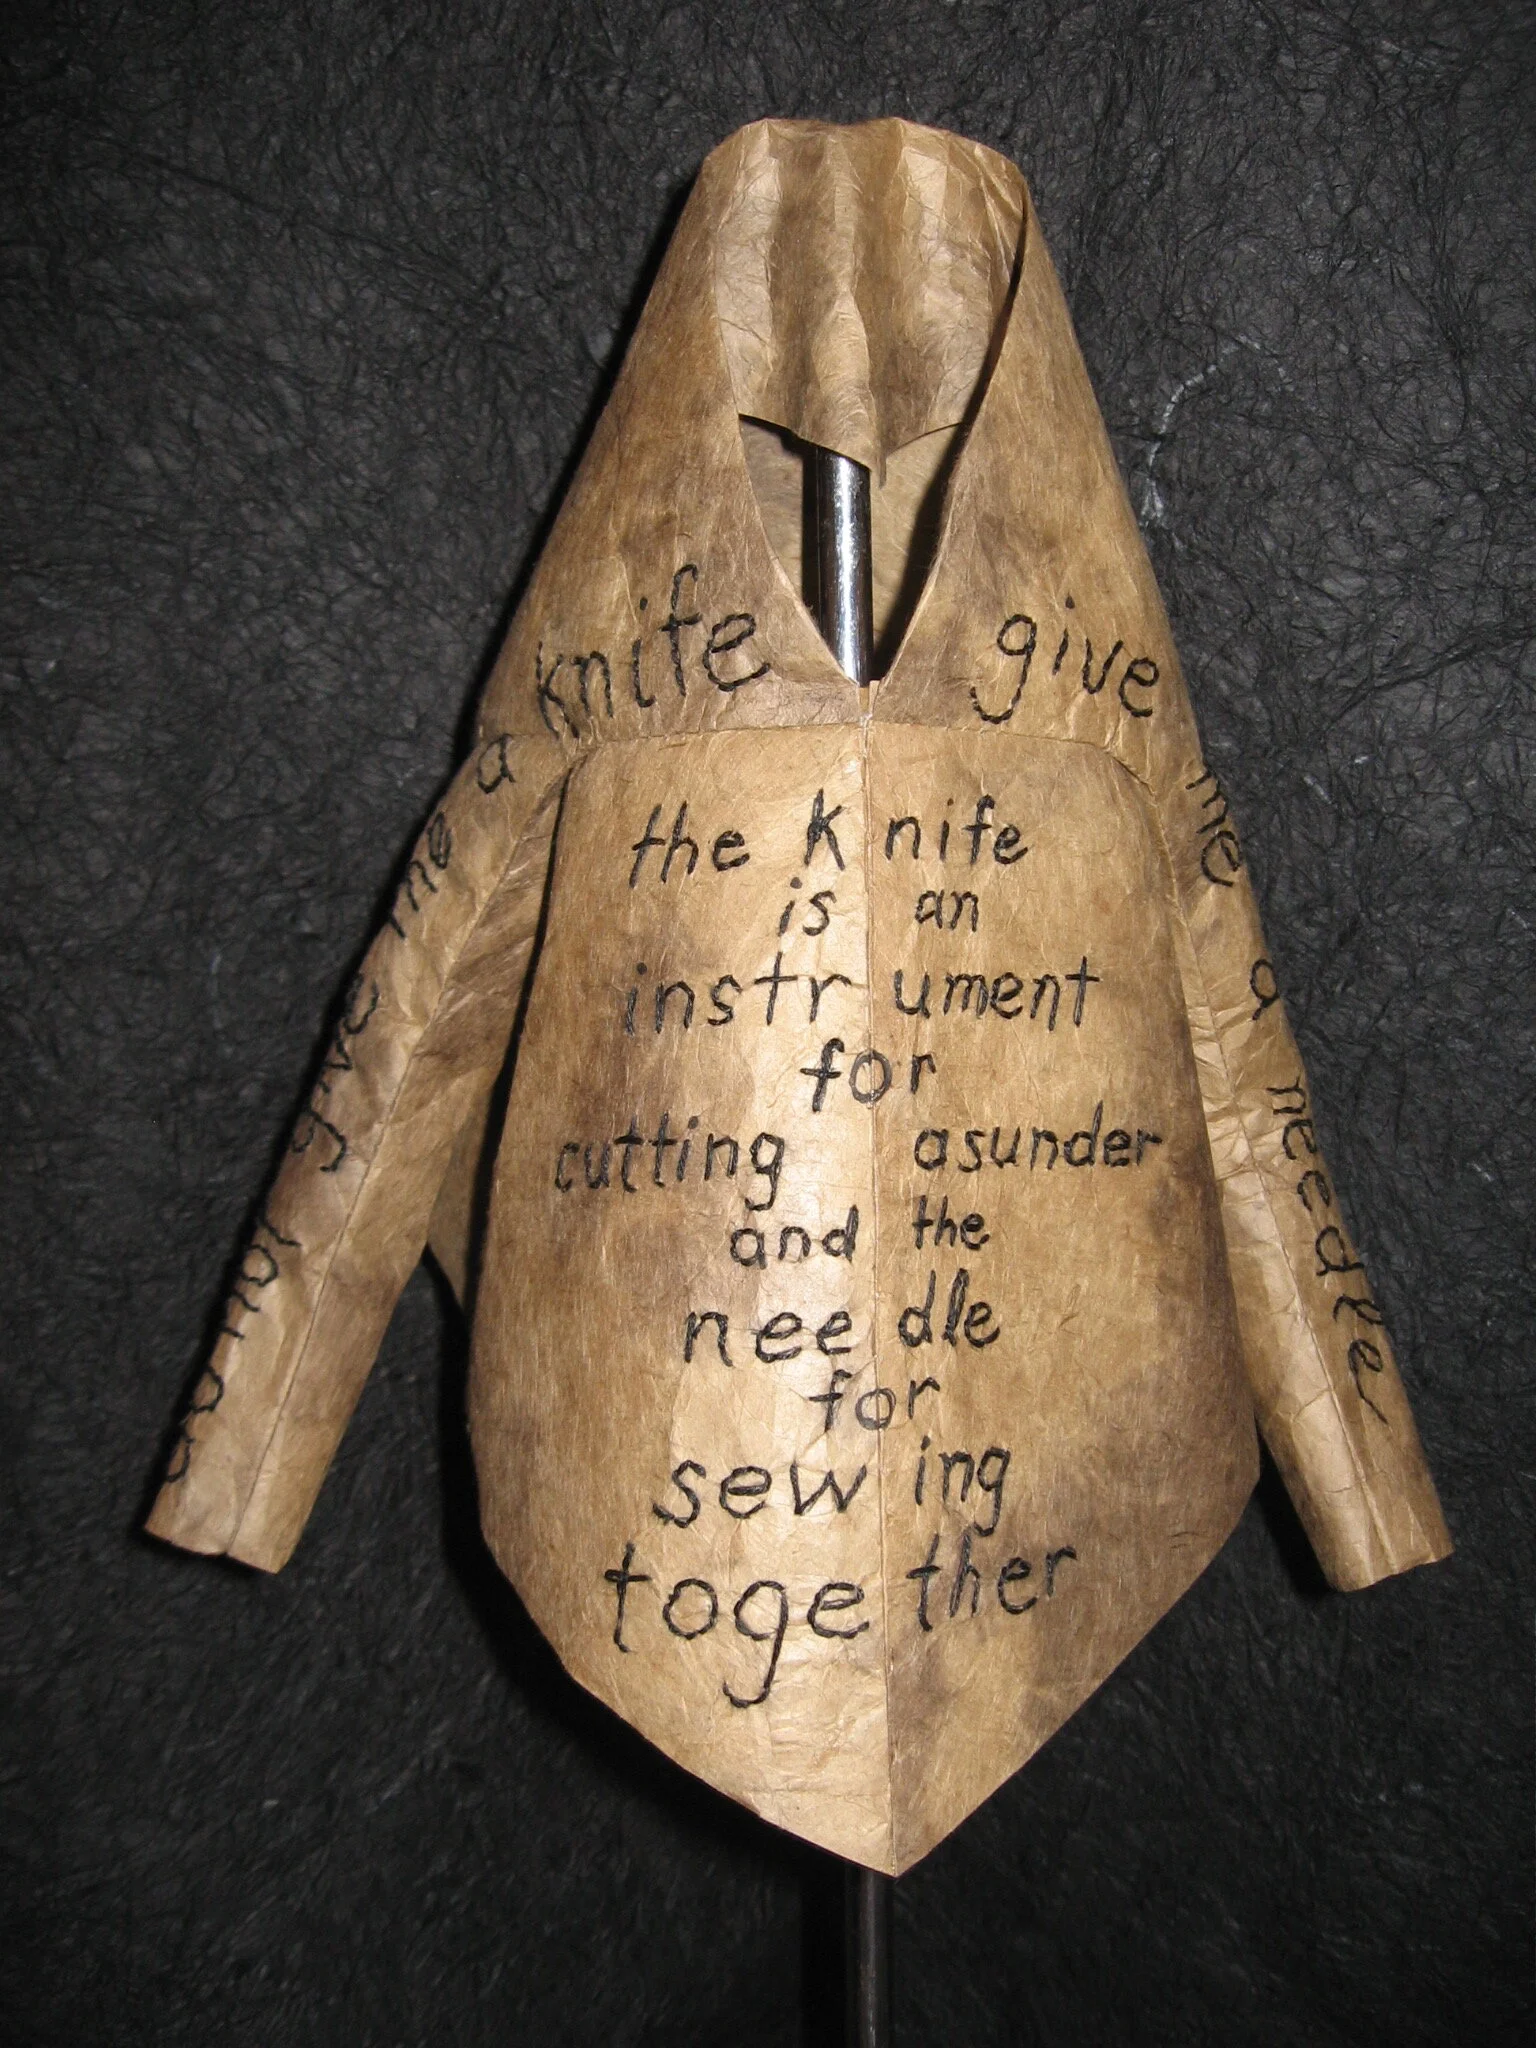 do not give me a knife
give me a needle
the knife
is an
instrument
for
cutting asunder
and the
needle
for
sewing
together